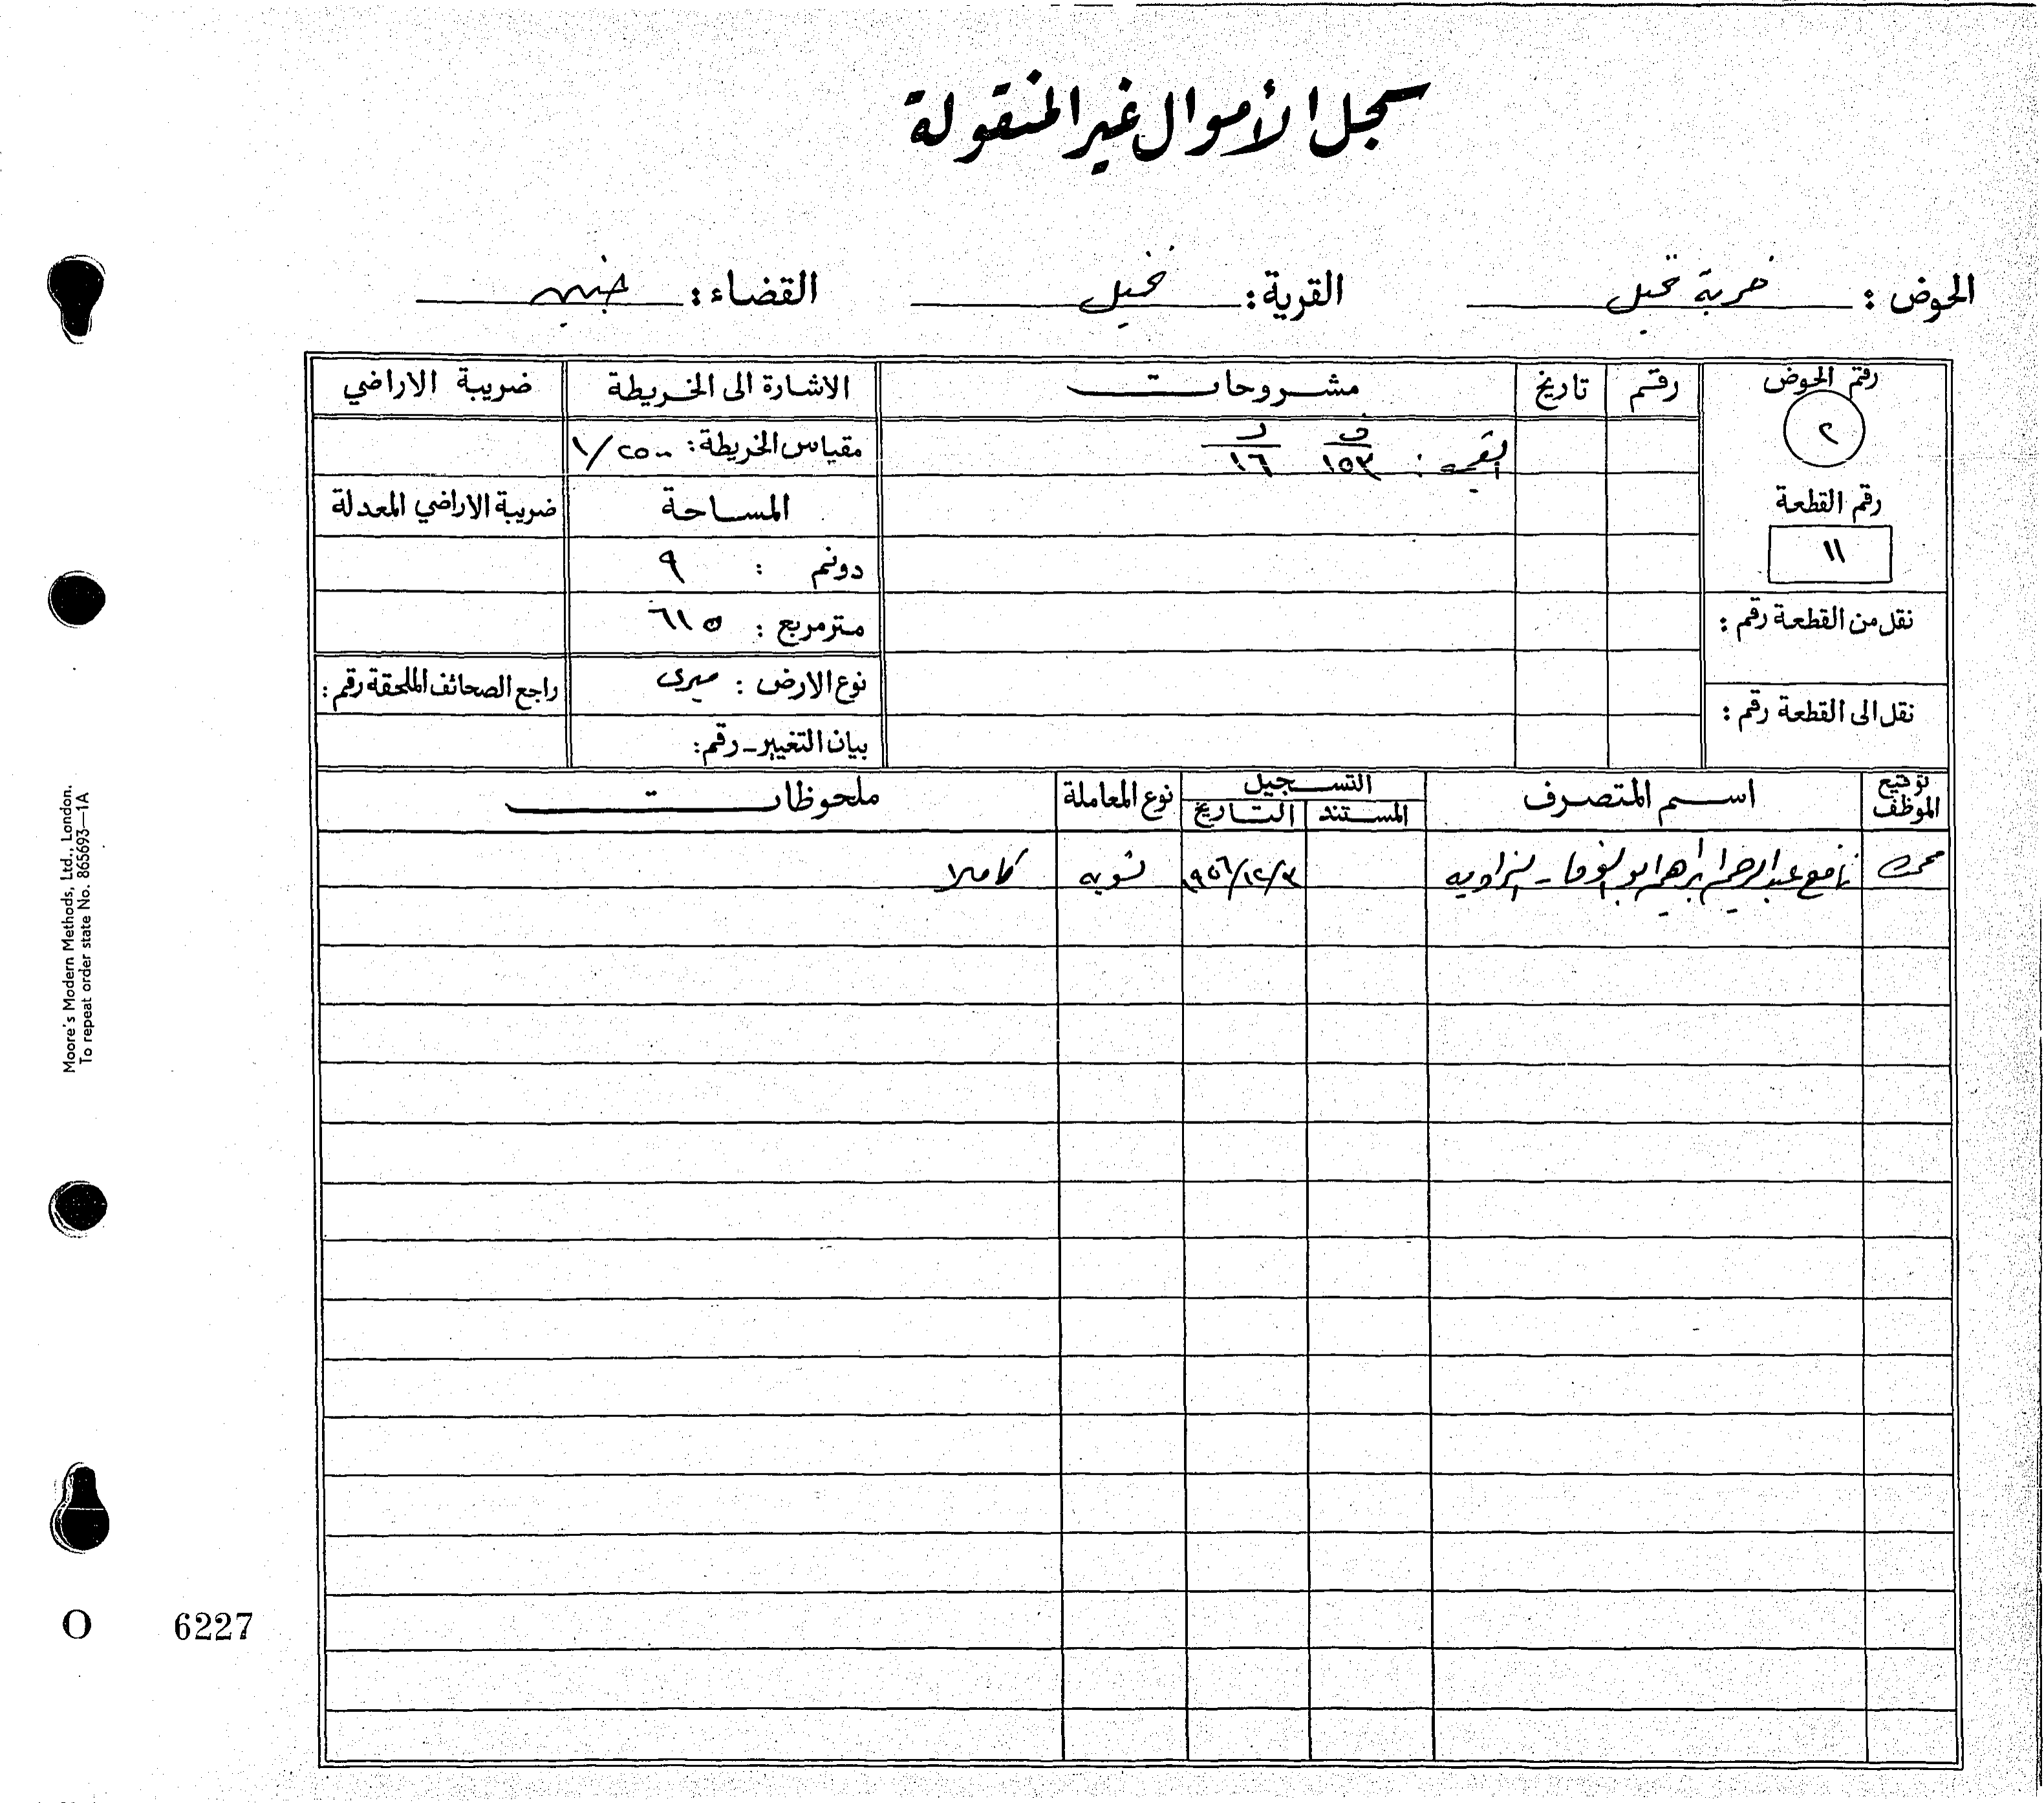 سجل الأموال غير المنقولة
الحوض : خربة نخيل القرية : نخيل القضاء : جنين
رقم الحوض رقم تاريخ مشروحات الاشارة الى الخريطة ضريبة الاراضي
٢ القيمة : ف ١٥٣ د ١٦ مقياس الخريطة : ١/٢٥٠٠
رقم القطعة المساحة ضريبة الاراضي المعدلة
١١ دونم : ٩
نقل من القطعة رقم : متر مربع : ٦١٥
نوع الارض : ميري راجع الصحائف الملحقة رقم :
نقل الى القطعة رقم : بيان التغيير - رقم :
توقيع الموظف اسم المتصرف التسجيل نوع المعاملة ملحوظات
المستند التاريخ
نافع عبد الرحيم ابراهيم ابو الوفا - الزاويه ١٩٥٦/١٢/٣ تسويه كاملا
Moore's Modern Methods, Ltd., London.
To repeat order state No. 865693—1A
O 6227